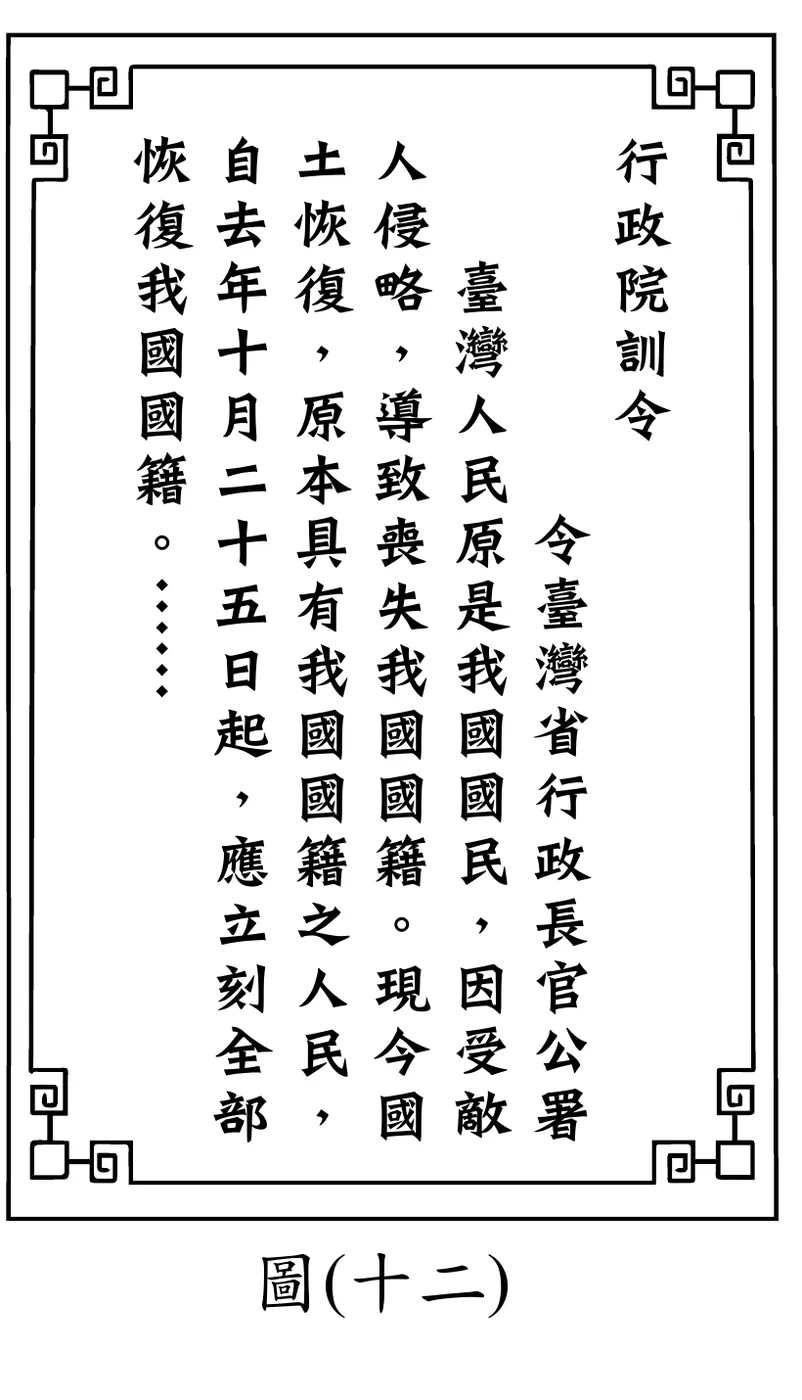 行政院訓令
令臺灣省行政長官公署
臺灣人民原是我國國民，因受敵
人侵略，導致喪失我國國籍。現今國
土恢復，原本具有我國國籍之人民，
自去年十月二十五日起，應立刻全部
恢復我國國籍。……
圖(十二)